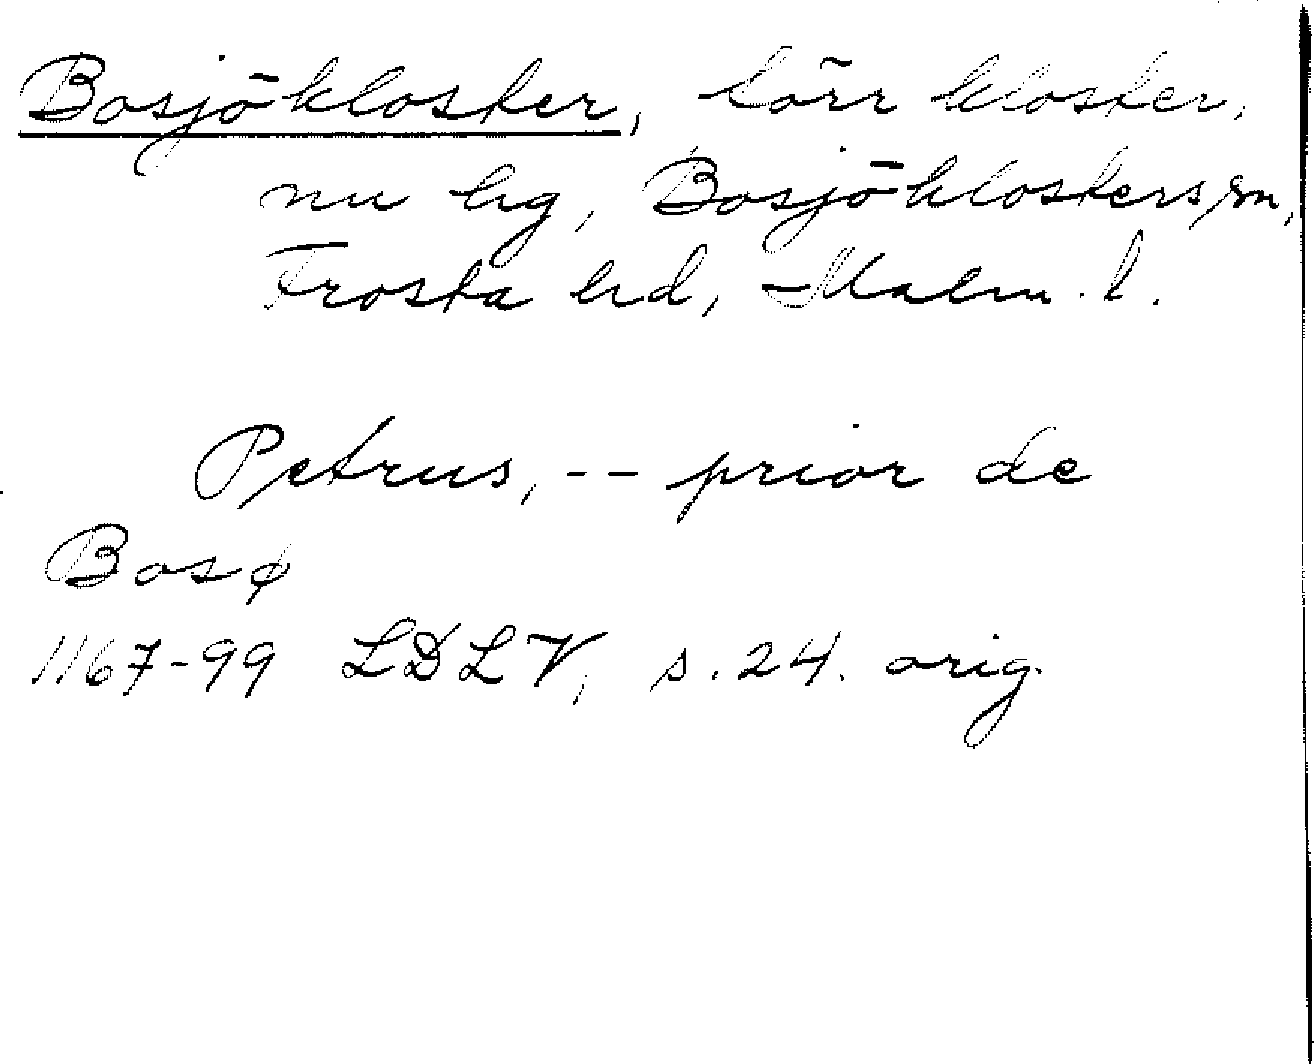 Bosjökloster, förr kloster,
nu hg, Bosjöklosters sn,
Frosta hd, Malm. l.
Petrus, -- prior de
Bosø
1167-99 LDLV, s. 24. orig.